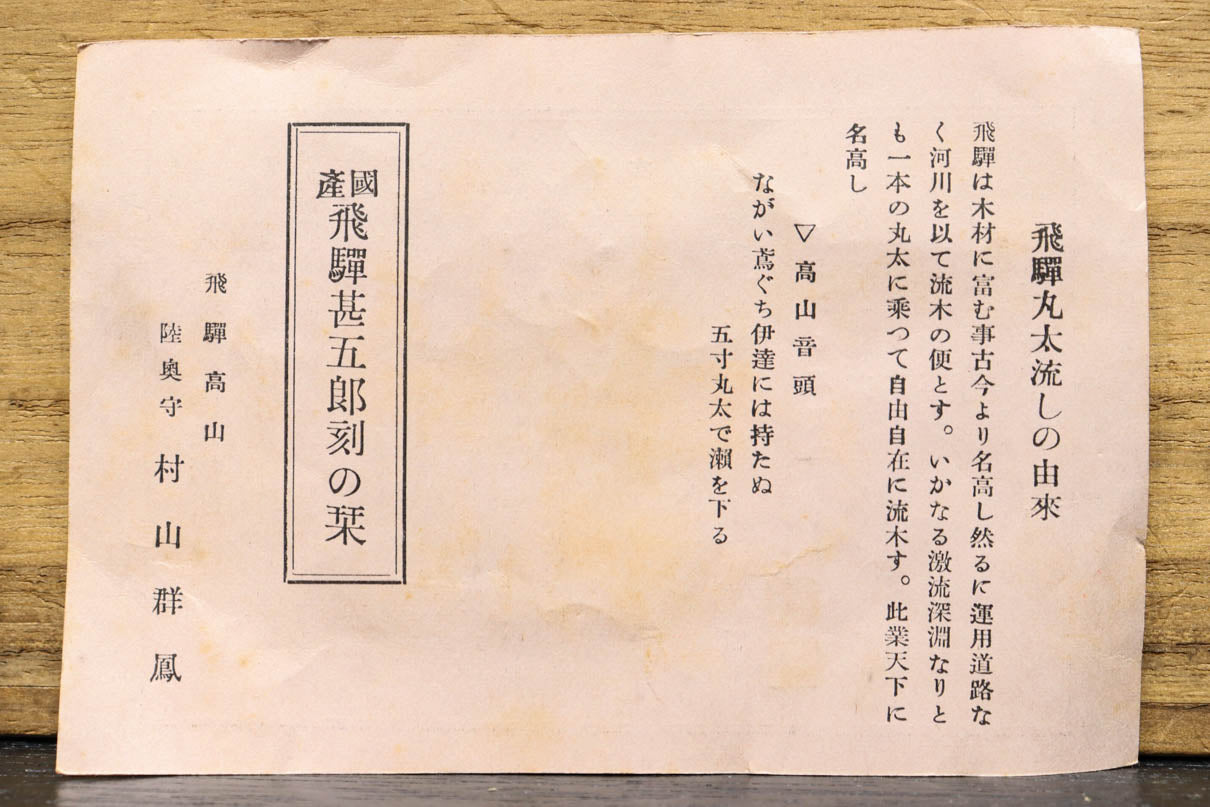 飛驒丸太流しの由來
飛驒は木材に富む事古今より名高し然るに運用道路な
く河川を以て流木の便とす。いかなる激流深淵なりと
も一本の丸太に乗つて自由自在に流木す。此業天下に
名高し
▽高山音頭
ながい鳶ぐち伊達には持たぬ
五寸丸太で瀨を下る
國產飛驒甚五郎刻の栞
飛驒高山
陸奧守 村山群鳳